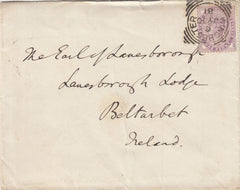 The Earl of Lanesborough
Lanesborough Lodge
Belturbet
Ireland.